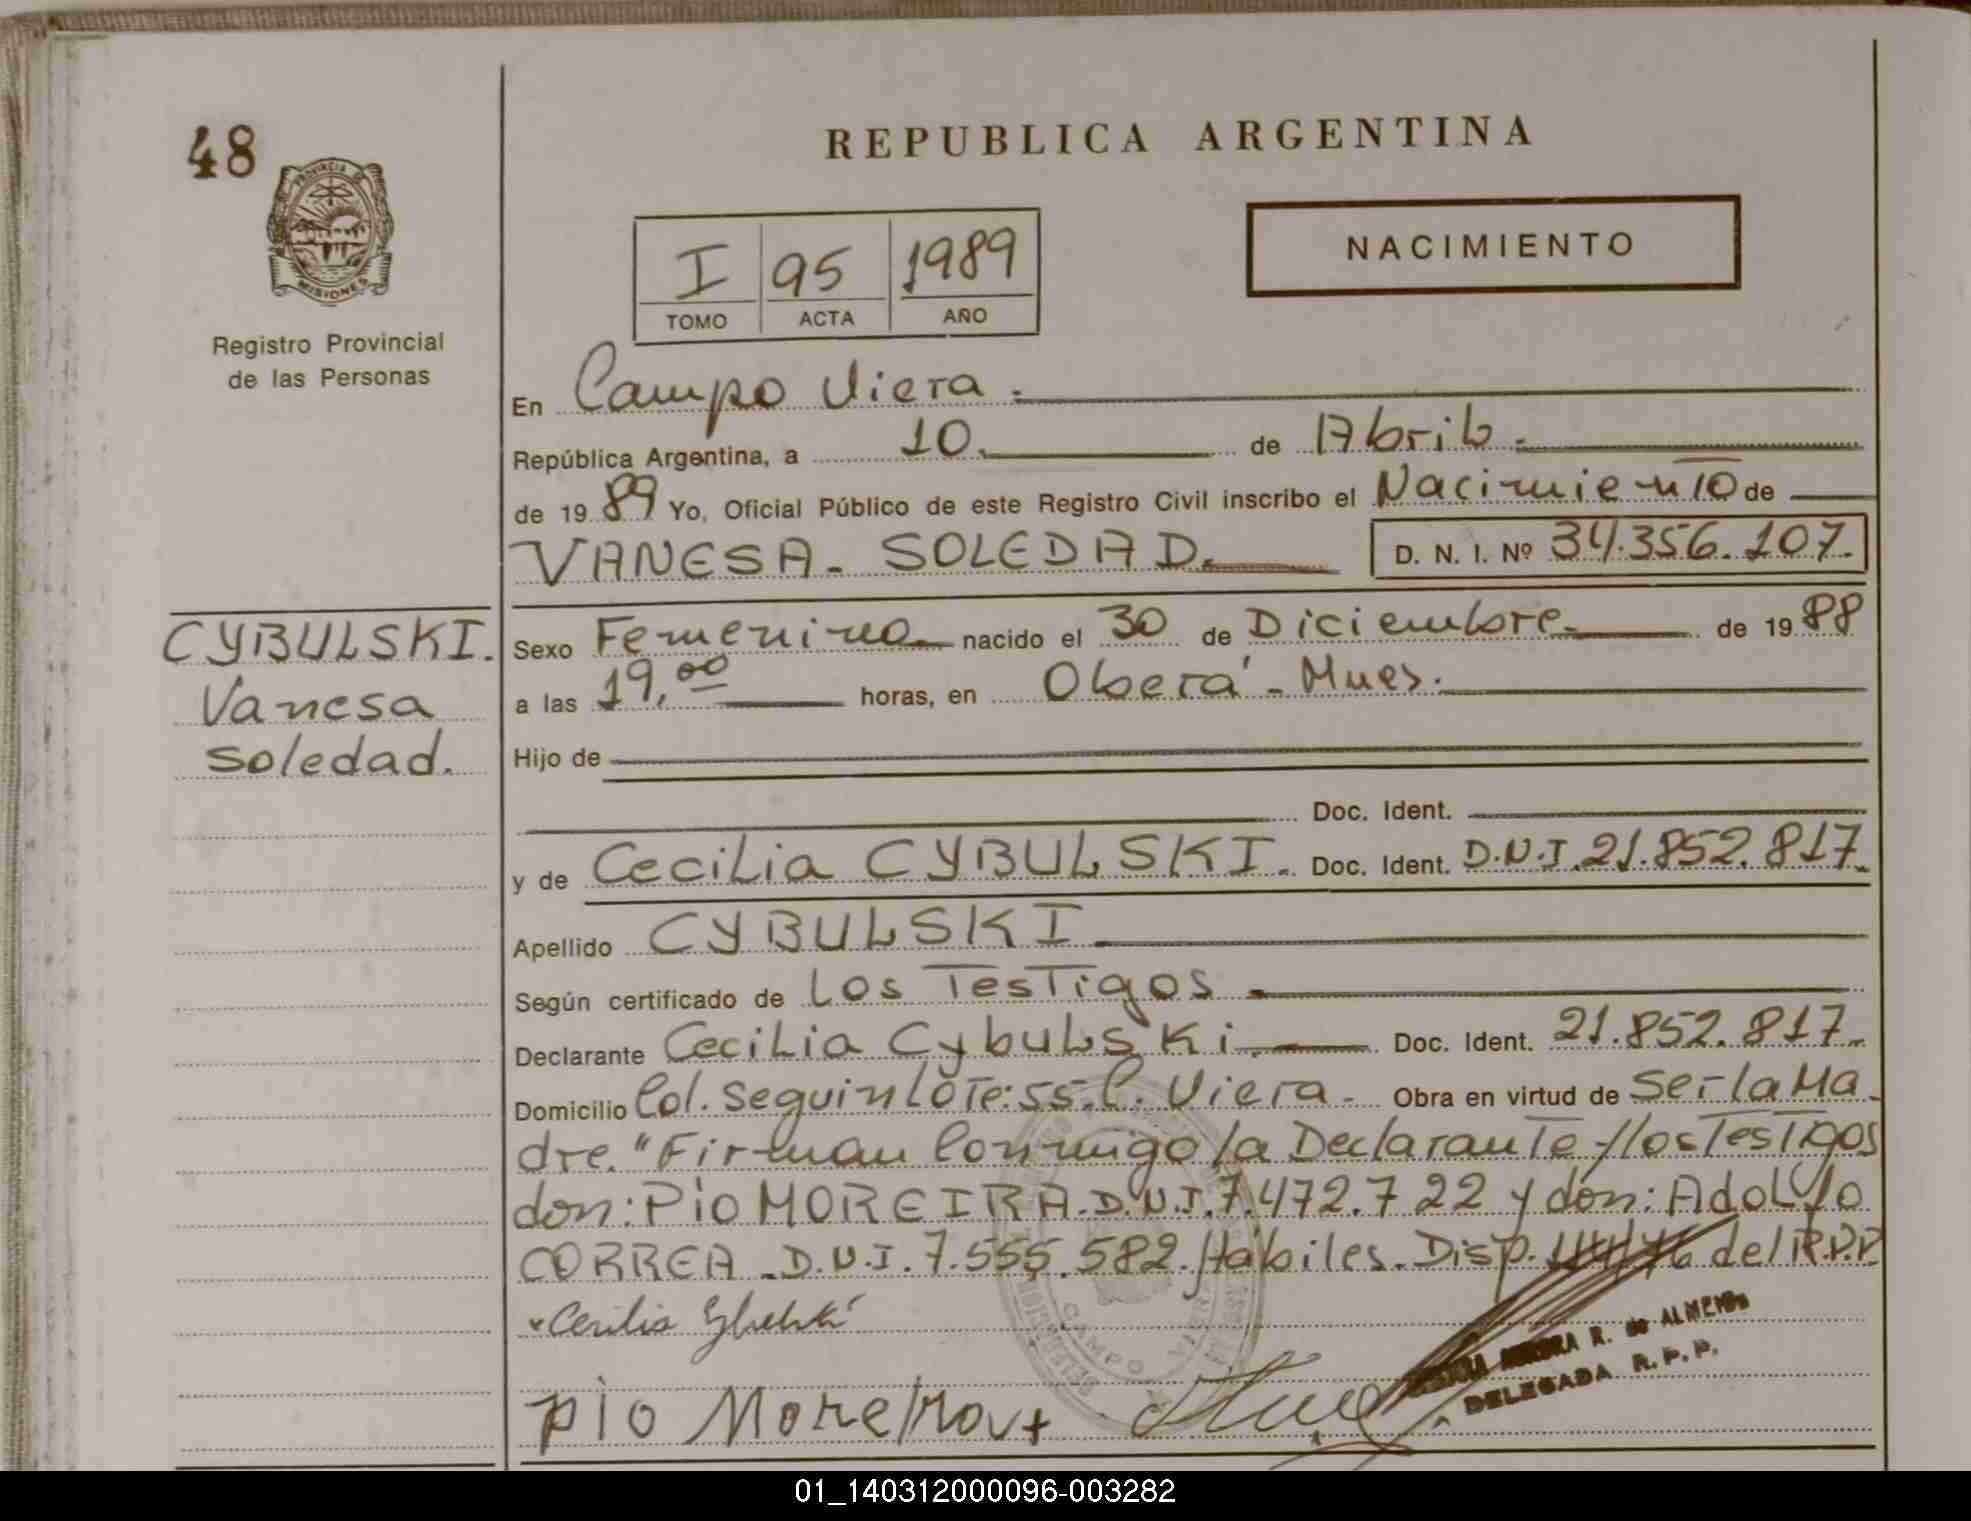 48
PROVINCIA DE
MISIONES
Registro Provincial
de las Personas
REPUBLICA ARGENTINA
NACIMIENTO
I 95 1989
TOMO ACTA AÑO
En Campo Viera.
República Argentina, a 10. de Abril.
de 19 89 Yo, Oficial Público de este Registro Civil inscribo el Nacimiento de
VANESA. SOLEDAD. D. N. I. Nº 34.356.107.
CYBULSKI.
Vanesa
Soledad.
Sexo Femenino nacido el 30 de Diciembre de 19 88
a las 19,00 horas, en Oberá - Mnes.
Hijo de
Doc. Ident.
y de Cecilia CYBULSKI. Doc. Ident. D.N.I. 21.852.817.
Apellido CYBULSKI
Según certificado de Los Testigos
Declarante Cecilia Cybulski. Doc. Ident. 21.852.817.
Domicilio Col. Seguin Lote: 55. C. Viera - Obra en virtud de Ser la Ma
dre. "Firman Conmigo la Declarante y los Testigos
don: Pio MOREIRA. D.N.I. 7.472.722 y don: Adolfo
CORREA. D.N.I. 7.555.582. Hábiles. Disp. 114/76 del R.P.P
Cecilia
CAMPO VIERA
R. de ALMEIDA
DELEGADA R.P.P.
pio Moreira
01_140312000096-003282